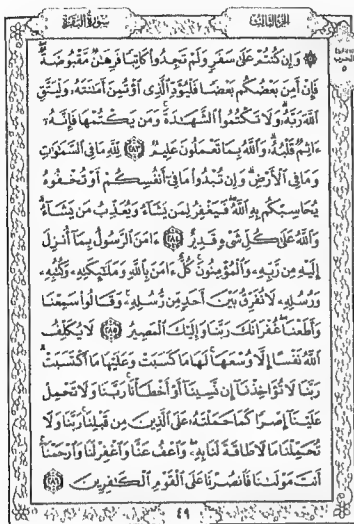 الجزء الثالث سورة البقرة
۞ وَإِن كُنتُمْ عَلَىٰ سَفَرٍ وَلَمْ تَجِدُوا۟ كَاتِبًا فَرِهَٰنٌ مَّقْبُوضَةٌ ۖ
فَإِنْ أَمِنَ بَعْضُكُم بَعْضًا فَلْيُؤَدِّ ٱلَّذِى ٱؤْتُمِنَ أَمَٰنَتَهُۥ وَلْيَتَّقِ
ٱللَّهَ رَبَّهُۥ ۗ وَلَا تَكْتُمُوا۟ ٱلشَّهَٰدَةَ ۚ وَمَن يَكْتُمْهَا فَإِنَّهُۥٓ
ءَاثِمٌ قَلْبُهُۥ ۗ وَٱللَّهُ بِمَا تَعْمَلُونَ عَلِيمٌ ﴿٢٨٣﴾ لِّلَّهِ مَا فِى ٱلسَّمَٰوَٰتِ
وَمَا فِى ٱلْأَرْضِ ۗ وَإِن تُبْدُوا۟ مَا فِىٓ أَنفُسِكُمْ أَوْ تُخْفُوهُ
يُحَاسِبْكُم بِهِ ٱللَّهُ ۖ فَيَغْفِرُ لِمَن يَشَآءُ وَيُعَذِّبُ مَن يَشَآءُ ۗ
وَٱللَّهُ عَلَىٰ كُلِّ شَىْءٍ قَدِيرٌ ﴿٢٨٤﴾ ءَامَنَ ٱلرَّسُولُ بِمَآ أُنزِلَ
إِلَيْهِ مِن رَّبِّهِۦ وَٱلْمُؤْمِنُونَ ۚ كُلٌّ ءَامَنَ بِٱللَّهِ وَمَلَٰٓئِكَتِهِۦ وَكُتُبِهِۦ
وَرُسُلِهِۦ لَا نُفَرِّقُ بَيْنَ أَحَدٍ مِّن رُّسُلِهِۦ ۚ وَقَالُوا۟ سَمِعْنَا
وَأَطَعْنَا ۖ غُفْرَانَكَ رَبَّنَا وَإِلَيْكَ ٱلْمَصِيرُ ﴿٢٨٥﴾ لَا يُكَلِّفُ
ٱللَّهُ نَفْسًا إِلَّا وُسْعَهَا ۚ لَهَا مَا كَسَبَتْ وَعَلَيْهَا مَا ٱكْتَسَبَتْ ۗ
رَبَّنَا لَا تُؤَاخِذْنَآ إِن نَّسِينَآ أَوْ أَخْطَأْنَا ۚ رَبَّنَا وَلَا تَحْمِلْ
عَلَيْنَآ إِصْرًا كَمَا حَمَلْتَهُۥ عَلَى ٱلَّذِينَ مِن قَبْلِنَا ۚ رَبَّنَا وَلَا
تُحَمِّلْنَا مَا لَا طَاقَةَ لَنَا بِهِۦ ۖ وَٱعْفُ عَنَّا وَٱغْفِرْ لَنَا وَٱرْحَمْنَآ ۚ
أَنتَ مَوْلَىٰنَا فَٱنصُرْنَا عَلَى ٱلْقَوْمِ ٱلْكَٰفِرِينَ ﴿٢٨٦﴾
٤٩